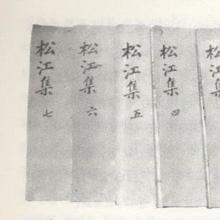 松江集 七
松江集 六
松江集 五
松江集 四